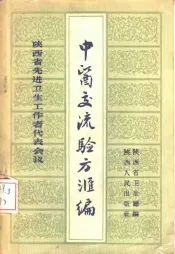 陕西省先进卫生工作者代表会议
中医交流验方汇编
陕西省卫生廳編
陕西人民出版社